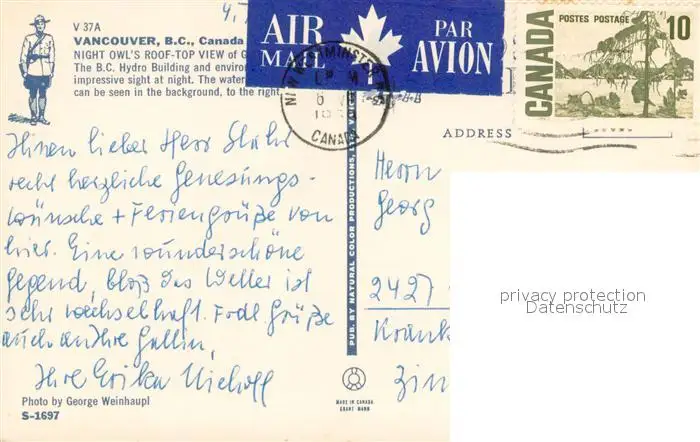 V 37A
VANCOUVER, B.C., Canada
NIGHT OWL'S ROOF-TOP VIEW of G
The B.C. Hydro Building and environ
impressive sight at night. The water
can be seen in the background, to the right.
4.
AIR MAIL
PAR AVION
NEW WESTMINSTER
CANADA
CANADA
POSTES POSTAGE
10
ADDRESS
Ihnen lieber Herr Stühr
recht herzliche Genesungs-
wünsche + Feriengrüße von
hier. Eine wunderschöne
Gegend, bloß das Wetter ist
sehr wechselhaft. Frdl Grüße
auch an Ihre Gattin,
Ihre Erika Niehoff
Herrn
Georg
2427
Krank
Zim
privacy protection
Datenschutz
PUB. BY NATURAL COLOR PRODUCTIONS,
MADE IN CANADA
GRANT MANN
Photo by George Weinhaupl
S-1697